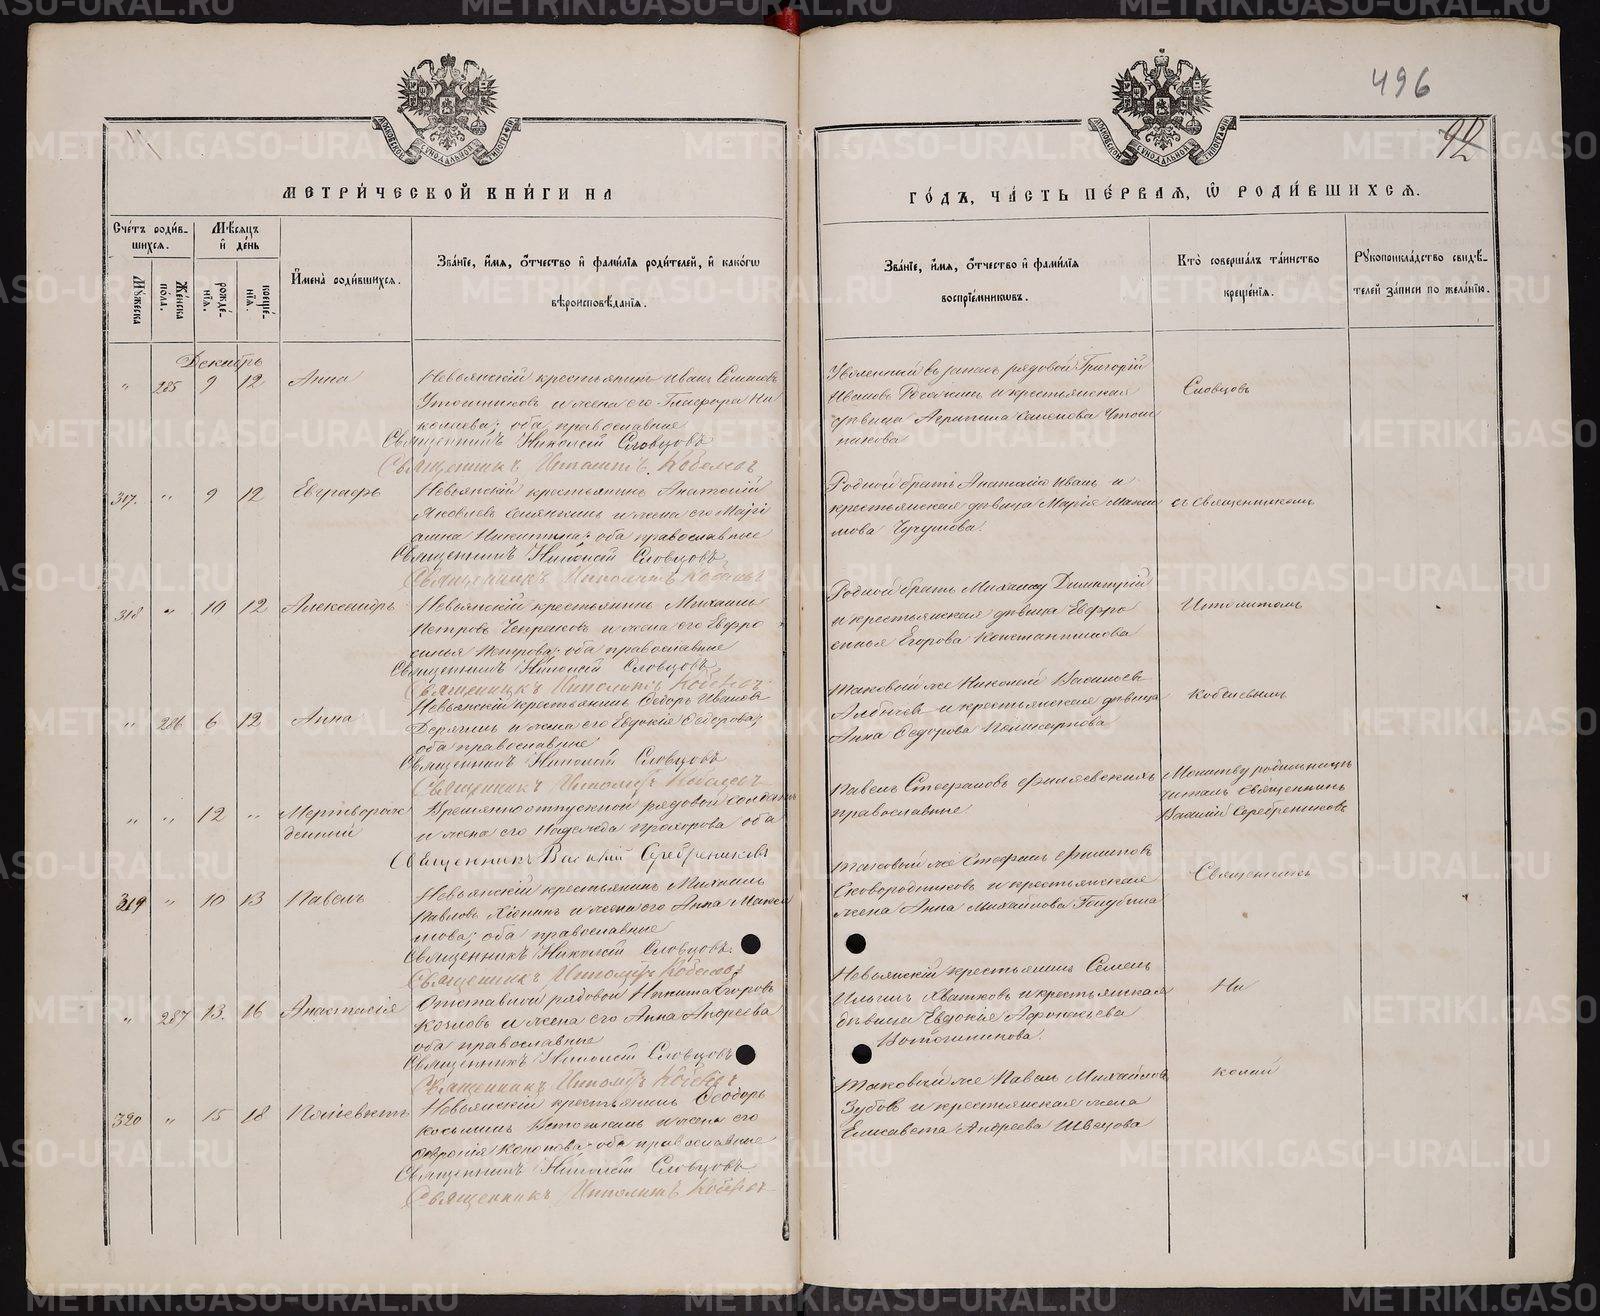 496
92
МЕТРИ́ЧЕСКОЙ КНИ́ГИ НА
ГО́ДЪ, ЧА́СТЬ ПЕ́РВАЯ, Ѡ РОДИ́ВШИХСЯ.
Сче́тъ роди́в-
шихся.
Мѣ́сяцъ
и҆ де́нь
Му́жеска
Же́нска
по́ла.
рожде́-
нїя.
креще́-
нїя.
И҆мена̀ роди́вшихся.
Зва́нїе, и҆́мя, ѻ҆́тчество и҆ фами́лїя роди́телей, и҆ како́гѡ
вѣроисповѣ́данїя.
Зва́нїе, и҆́мя, ѻ҆́тчество и҆ фами́лїя
воспрїе́мникѡвъ.
Кто̀ соверша́лъ та́инство
креще́нїя.
Рꙋкоприкла́дство свидѣ́-
телей за́писи по жела́нїю.
Декабрь
" 285 9 12 Анна
Невьянскій крестьянинъ Иванъ Семеновъ
Утошниковъ и жена его Глафира Ни
колаева; оба православные
Священникъ Николай Словцовъ
Священникъ Ипполитъ Кобелевъ
Уволенный въ запасъ рядовой Григорій
Ивановъ и крестьянская
дѣвица Агрипина Семенова Утош
никова
Словцовъ
317. " 9 12 Евграфъ
Невьянскій крестьянинъ Анатолій
Яковлевъ и жена его Марі
амна Никитина; оба православные
Священникъ Николай Словцовъ
Священникъ Ипполитъ Кобелевъ
Родной братъ Анатолія Иванъ и
крестьянская дѣвица Марія Макси
мова
съ Священникомъ
318 " 10 12 Александръ
Невьянскій крестьянинъ Михаилъ
Петровъ и жена его Евфро
синья Петрова; оба православные
Священникъ Николай Словцовъ
Священникъ Ипполитъ Кобелевъ
Родной братъ Михаилу Димитрій
и крестьянская дѣвица Евфро
синья Егорова Константинова
Ипполитомъ
" 286 6 12 Анна
Невьянскій крестьянинъ Ѳедоръ Ивановъ
и жена его Евдокія Ѳедорова;
оба православные
Священникъ Николай Словцовъ
Священникъ Ипполитъ Кобелевъ
Таковый же Николай Васильевъ
и крестьянская дѣвица
Анна Ѳедорова
Кобелевымъ
" " 12 " Мертворож
денный
Временноотпускной рядовой солдатъ
и жена его Надежда Прохорова оба
Священникъ Василій Серебрениковъ
Павелъ Стефановъ
православные
Молитву родильницѣ
читалъ Священникъ
Василій Серебрениковъ
319 " 10 13 Павелъ
Невьянскій крестьянинъ Михаилъ
Павловъ и жена его Анна Макси
мова; оба православные
Священникъ Николай Словцовъ
Священникъ Ипполитъ Кобелевъ
Таковый же Стефанъ Филиповъ
Сковородниковъ и крестьянская
жена Анна Михайлова Голубина
Священникъ
" 287 13. 16 Анастасія
Отставной рядовой Никита Егоровъ
Козловъ и жена его Анна Андреева
оба православные
Священникъ Николай Словцовъ
Священникъ Ипполитъ Кобелевъ
Невьянскій крестьянинъ Семенъ
Ильинъ Хватковъ и крестьянская
дѣвица Евдокія Афонасьева
Ни
320 " 15 18
Невьянскій крестьянинъ Ѳеодоръ
Косьминъ и жена его
Кононова; оба православные
Священникъ Николай Словцовъ
Священникъ Ипполитъ Кобелевъ
Таковый же Павелъ Михайловъ
Зубовъ и крестьянская жена
Елисавета Андреева Швецова
колай
METRIKI.GASO-URAL.RU